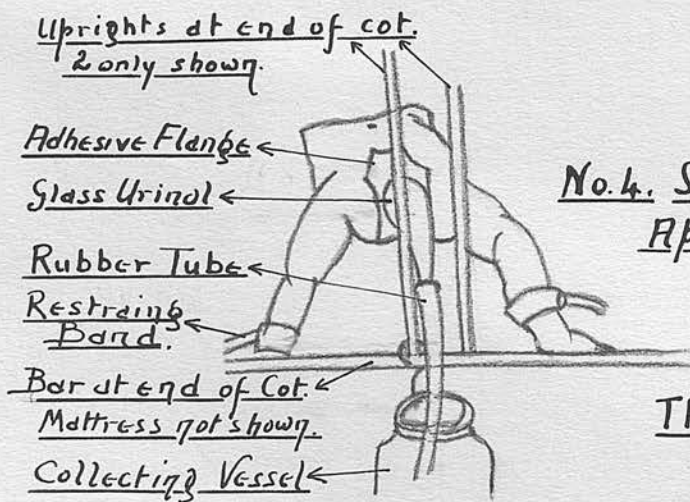 Uprights at end of cot.
2 only shown.
Adhesive Flange
Glass Urinal
Rubber Tube
Restraing
Band.
Bar at end of Cot.
Mattress not shown.
Collecting Vessel
No. 4. S
Ap
Th